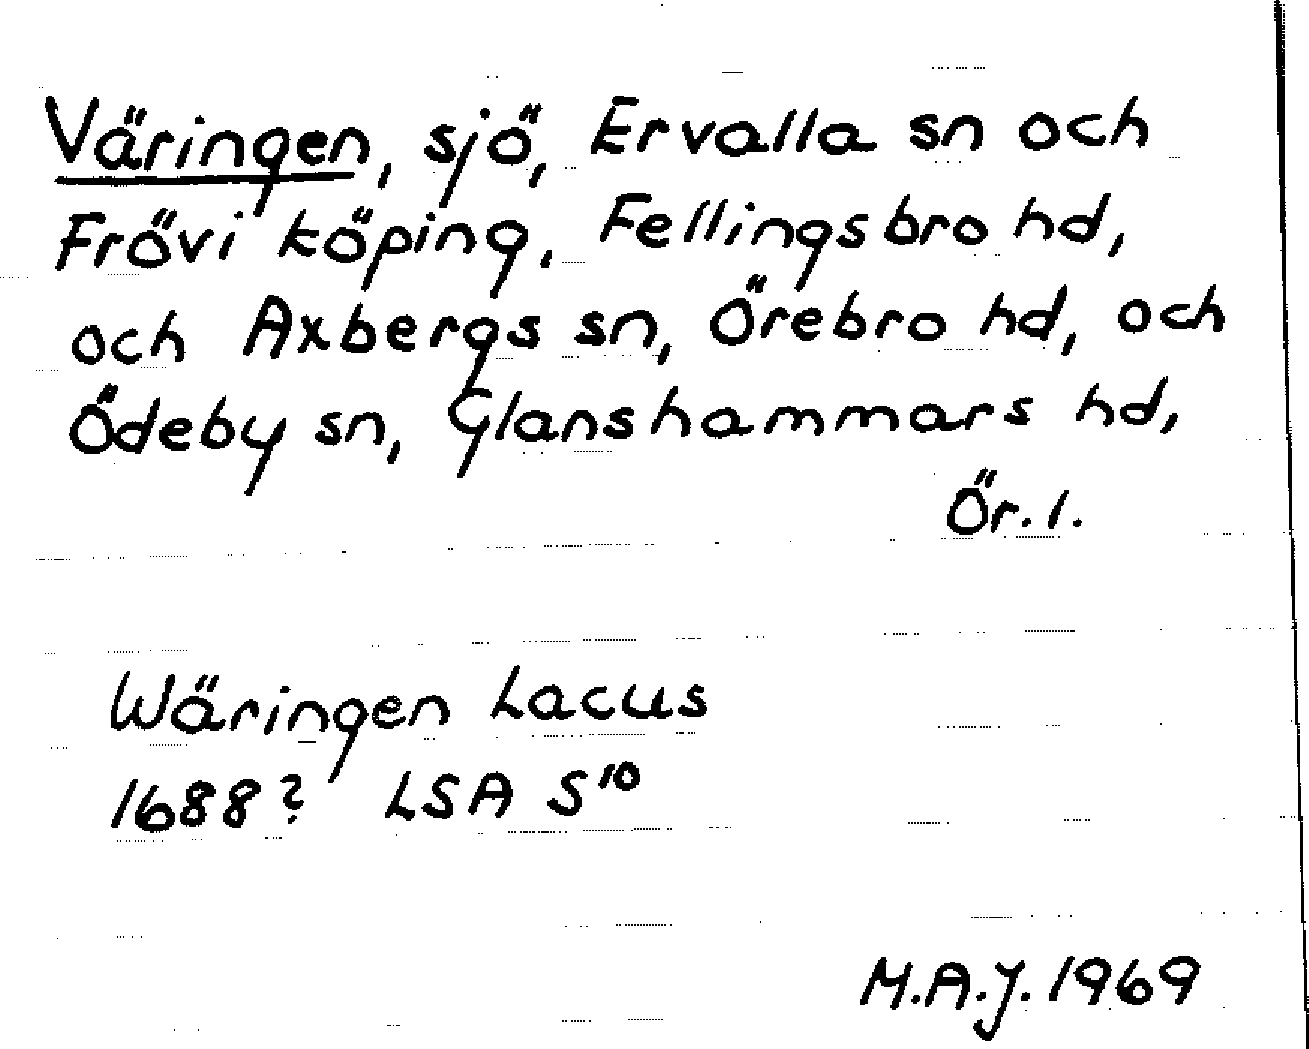 Väringen, sjö, Ervalla sn och
Frövi köping, Fellingsbro hd,
och Axbergs sn, Örebro hd, och
Ödeby sn, Glanshammars hd,
Ör. l.
Wäringen Lacus
1688? LSA S10
M.A.J. 1969